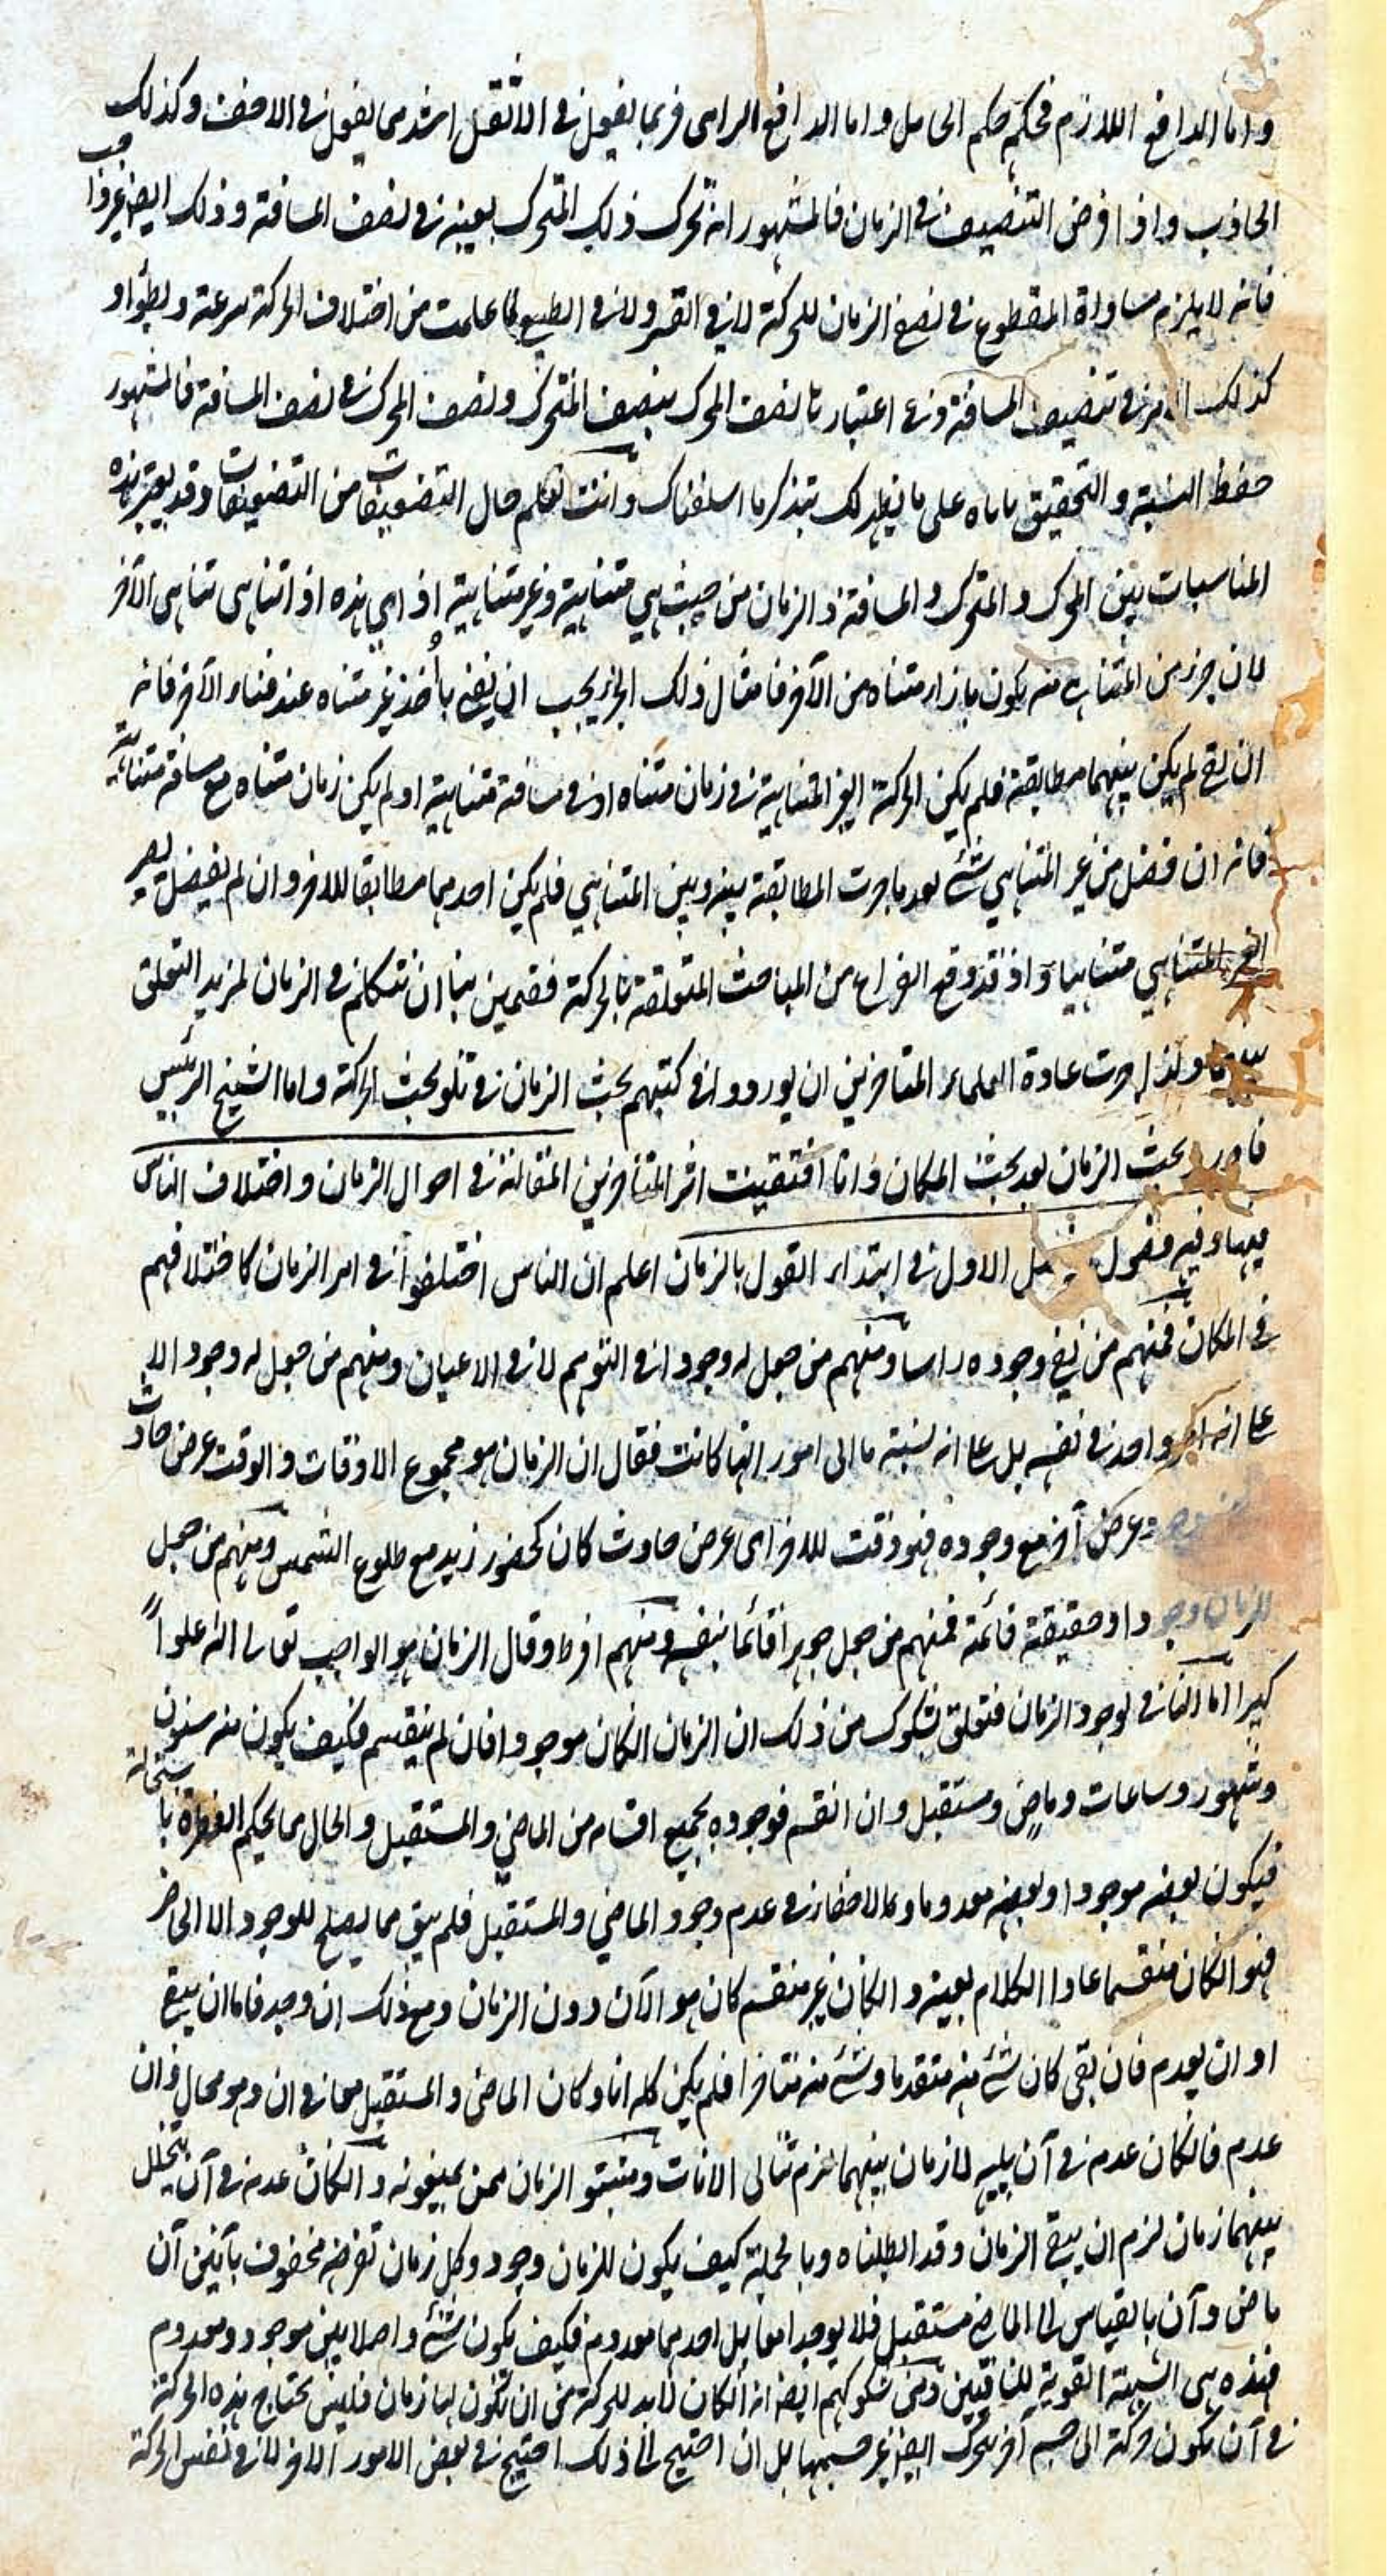 واما الدافع اللازم فحكمه حكم الحامل واما الدافع الرامى فربما يفعل فى الاثقل اشد مما يفعل فى الاخف وكذلك
الجاذب واذا فرض التنصيف فى الزمان فالمشهور انه تحرك ذلك المتحرك بعينه فى نصف المسافة وذلك ايضا غير واجب
فانه لا يلزم مساواة المقطوع فى نصفى الزمان للحركة لا فى القسر ولا فى الطبع لما علمت من اختلاف الحركة سرعة وبطؤا و
كذلك الامر فى تنصيف المسافة وفى اعتبار نصف المحرك بنصف المتحرك ونصف المحرك فى نصف المسافة فالمشهور
حفظ النسبة والتحقيق ياباه على ما يظهر لك بتذكر ما اسلفناك وانت تعلم حال التضعيفات من التنصيفات وقد يعتبر هذه
المناسبات بين المحرك والمتحرك والمسافة والزمان من حيث هى متناهية وغير متناهية اذ اى هذه اذا تناهى تناهى الآخر
لان جزء من المتناهى منه يكون بازاء متناه من الآخر فامثال ذلك الجزء يجب ان يفنى باخذ غير متناه عند فناء الآخر فانه
ان بقى لم يكن بينهما مطابقة فلم يكن الحركة الغير المتناهية فى زمان متناه او فى مسافة متناهية او لم يكن زمان متناه مع مسافة متناهية
فانه ان فضل من غير المتناهى شئ بعد ما جرت المطابقة بينه وبين المتناهى فلم يكن احدهما مطابقا للاخر وان لم يفضل يصير
الغير المتناهى متناهيا واذ قد وقع الفراغ من المباحث المتعلقة بالحركة فقمين بنا ان نتكلم فى الزمان لمزيد التعلق
بينهما ولذا جرت عادة العلماء المتاخرين ان يوردوا فى كتبهم بحث الزمان فى تلو بحث الحركة واما الشيخ الرئيس
فاورد بحث الزمان بعد بحث المكان وانا اقتفيت اثر المتاخرين المقالة فى احوال الزمان واختلاف الناس
فيها وفيه فصول الفصل الاول فى ابتداء القول بالزمان اعلم ان الناس اختلفوا فى امر الزمان كاختلافهم
فى المكان فمنهم من نفى وجوده راسا ومنهم من جعل له وجودا فى التوهم لا فى الاعيان ومنهم من جعل له وجودا لا
على انه امر واحد فى نفسه بل على انه نسبة ما الى امور ايها كانت فقال ان الزمان هو مجموع الاوقات والوقت عرض حادث
وعرض آخر مع وجوده فهو وقت للاخر اى عرض حادث كان كحضور زيد مع طلوع الشمس ومنهم من جعل
للزمان وجودا وحقيقة قائمة فمنهم من جعل جوهرا قائما بنفسه ومنهم افرط وقال الزمان هو الواجب تعالى الله علوا
كبيرا اما النافى لوجود الزمان فتعلق بشكوك من ذلك ان الزمان ان كان موجودا فان لم ينقسم فكيف يكون منه سنون
وشهور وساعات وماض ومستقبل وان انقسم فوجوده بجميع اقسامه من الماضى والمستقبل والحال مما يحكم الفطرة باستحالته
فيكون بعضه موجودا وبعضه معدوما ومما لا خفاء فى عدم وجود الماضى والمستقبل فلم يبق مما يصلح للوجود الا الحاضر
فهو ان كان منقسما عاد الكلام بعينه وان كان غير منقسم كان هو الآن دون الزمان ومع ذلك ان وجد فاما ان يبقى
او ان يعدم فان بقى كان شئ منه متقدما وشئ منه متاخرا فلم يكن كله انا وكان الماضى والمستقبل معا فى ان وهو محال وان
عدم فان كان عدمه فى آن يليه لا زمان بينهما لزم تتالى الانات ومثبتو الزمان ممن يمنعونه وان كان عدمه فى آن يتخلل
بينهما زمان لزم ان يبقى الزمان وقد ابطلناه وبالجملة كيف يكون للزمان وجود وكل زمان تفرضه محفوف بآنين آن
ماض وآن بالقياس الى الماضى مستقبل فلا يوجدا معا بل احدهما معدوم فكيف يكون شئ واصلا بين موجود ومعدوم
فهذه هى الشبهة القوية للنافين ومن شكوكهم ايضا انه ان كان لابد للحركة من ان تكون لها زمان فليس تحتاج هذه الحركة
فى آن تكون حركة الى جسم آخر يتحرك ايضا غير جسمها بل ان احتيج الى ذلك احتيج فى بعض الامور الاخر لا فى نفس الحركة